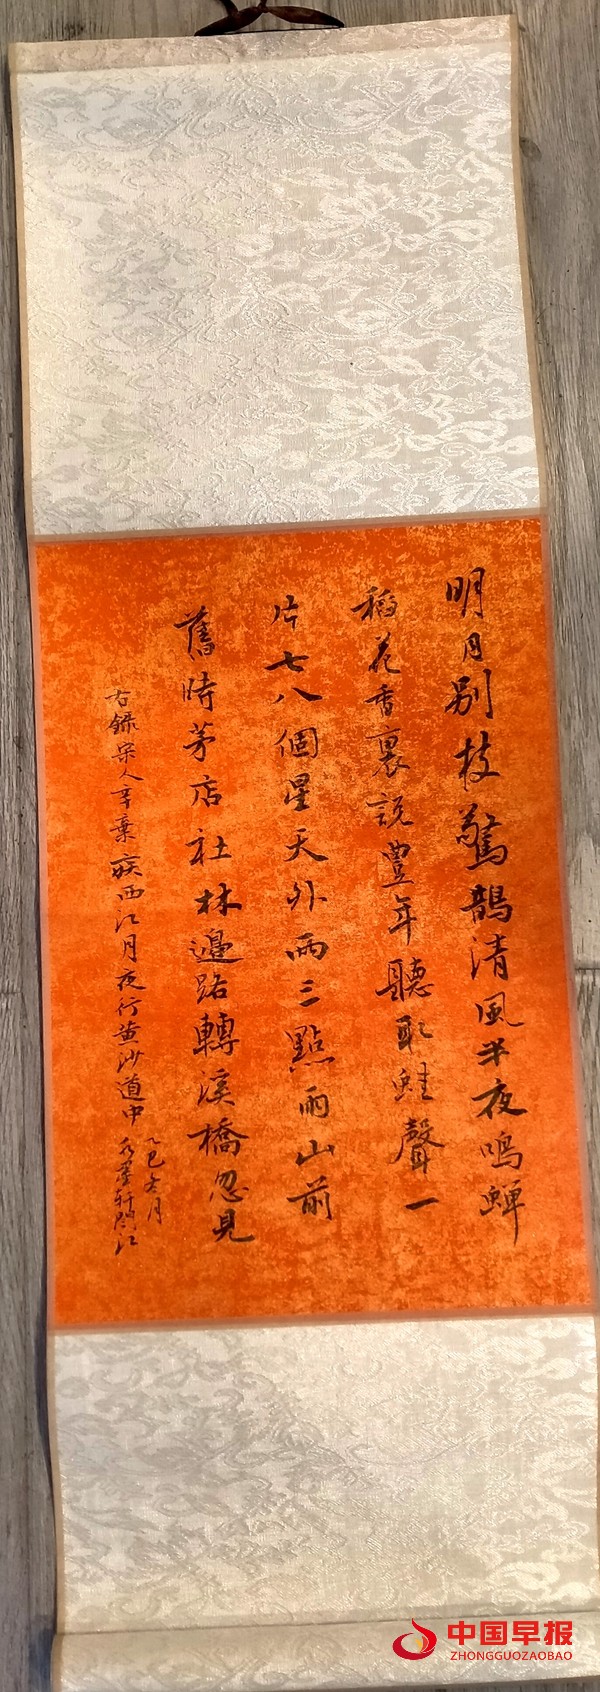 明月别枝驚鵲清風半夜鳴蟬
稻花香裏説豐年聽取蛙聲一
片七八個星天外兩三點雨山前
舊時茅店社林邊路轉溪橋忽見
右録宋人辛棄疾西江月夜行黄沙道中
乙巳 月
軒 江
中国早报
ZHONGGUOZAOBAO